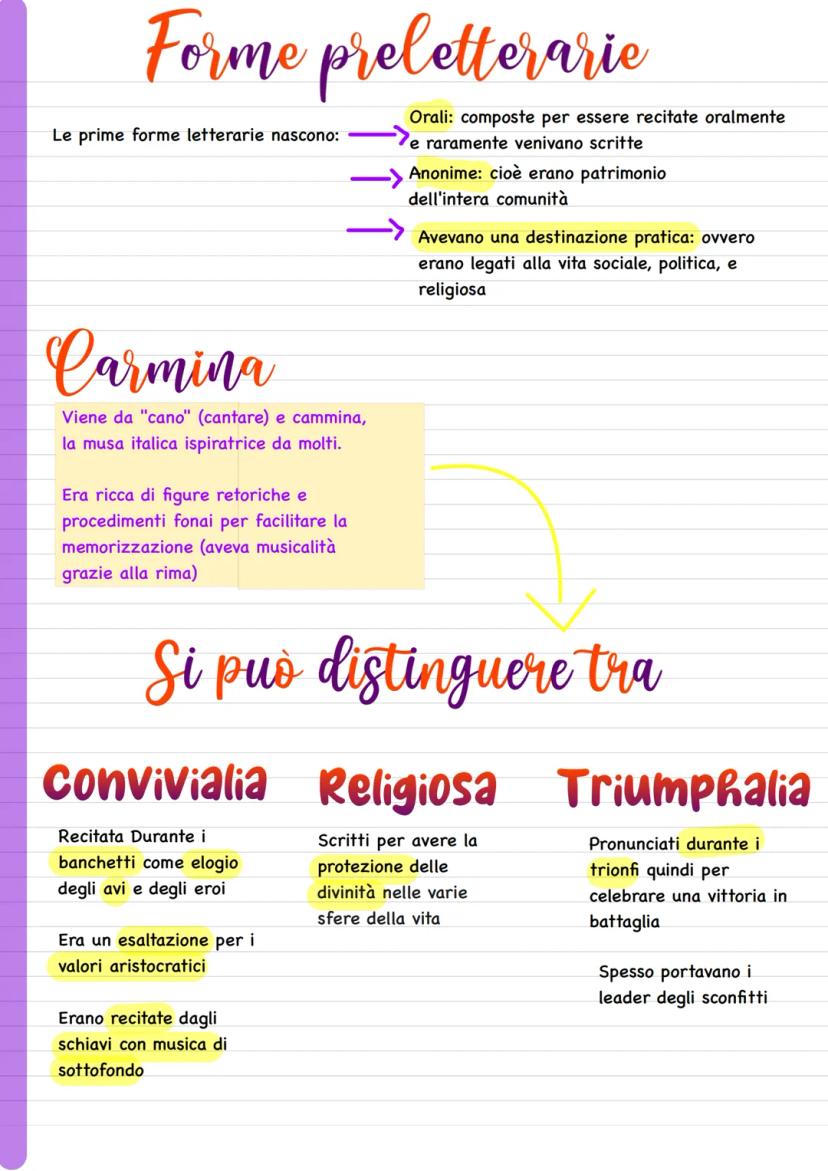 Forme preletterarie
Le prime forme letterarie nascono:
Orali: composte per essere recitate oralmente
e raramente venivano scritte
Anonime: cioè erano patrimonio
dell'intera comunità
Avevano una destinazione pratica: ovvero
erano legati alla vita sociale, politica, e
religiosa
Carmina
Viene da "cano" (cantare) e cammina,
la musa italica ispiratrice da molti.
Era ricca di figure retoriche e
procedimenti fonai per facilitare la
memorizzazione (aveva musicalità
grazie alla rima)
Si può distinguere tra
Convivialia
Recitata Durante i
banchetti come elogio
degli avi e degli eroi
Era un esaltazione per i
valori aristocratici
Erano recitate dagli
schiavi con musica di
sottofondo
Religiosa
Scritti per avere la
protezione delle
divinità nelle varie
sfere della vita
Triumphalia
Pronunciati durante i
trionfi quindi per
celebrare una vittoria in
battaglia
Spesso portavano i
leader degli sconfitti